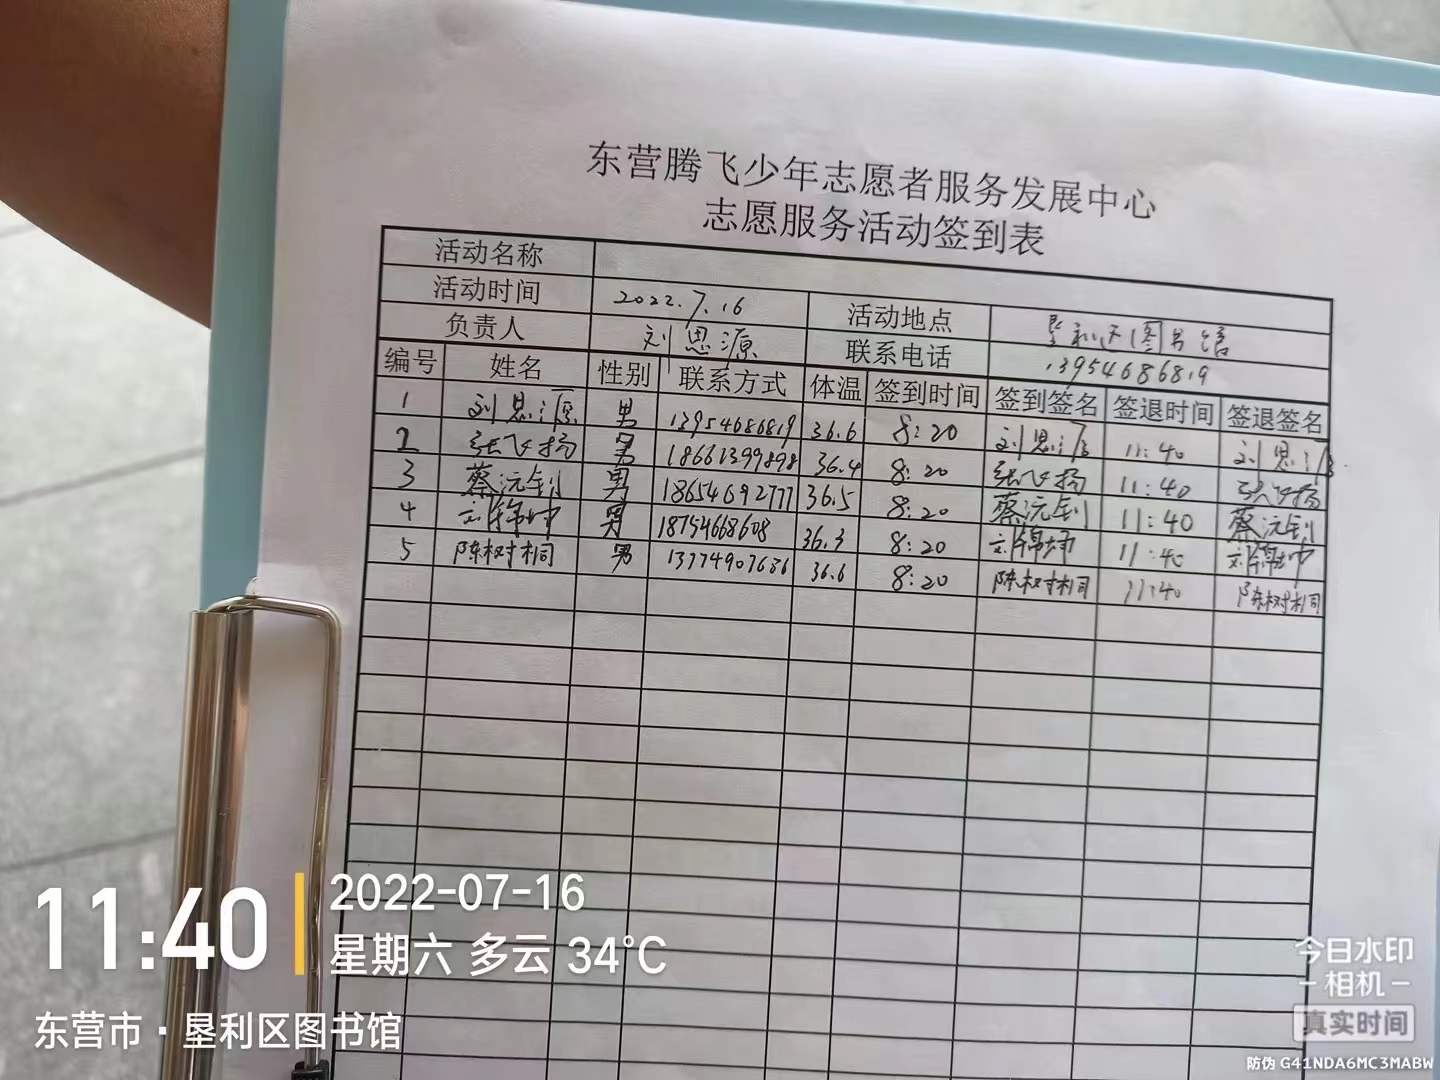 东营腾飞少年志愿者服务发展中心
志愿服务活动签到表
活动名称
活动时间 2022.7.16 活动地点 垦利区图书馆
负责人 刘思源 联系电话 13954686819
编号 姓名 性别 联系方式 体温 签到时间 签到签名 签退时间 签退签名
1 刘思源 男 13954686819 36.6 8:20 刘思源 11:40 刘思源
2 张飞扬 男 18661399898 36.4 8:20 张飞扬 11:40 张飞扬
3 蔡沅钊 男 18654692777 36.5 8:20 蔡沅钊 11:40 蔡沅钊
4 刘锦坤 男 18754668608 36.3 8:20 刘锦坤 11:40 刘锦坤
5 陈树桐 男 13774907636 36.6 8:20 陈树桐 11:40 陈树桐
11:40
2022-07-16
星期六 多云 34°C
东营市·垦利区图书馆
今日水印
相机
真实时间
防伪 G41NDA6MC3MABW